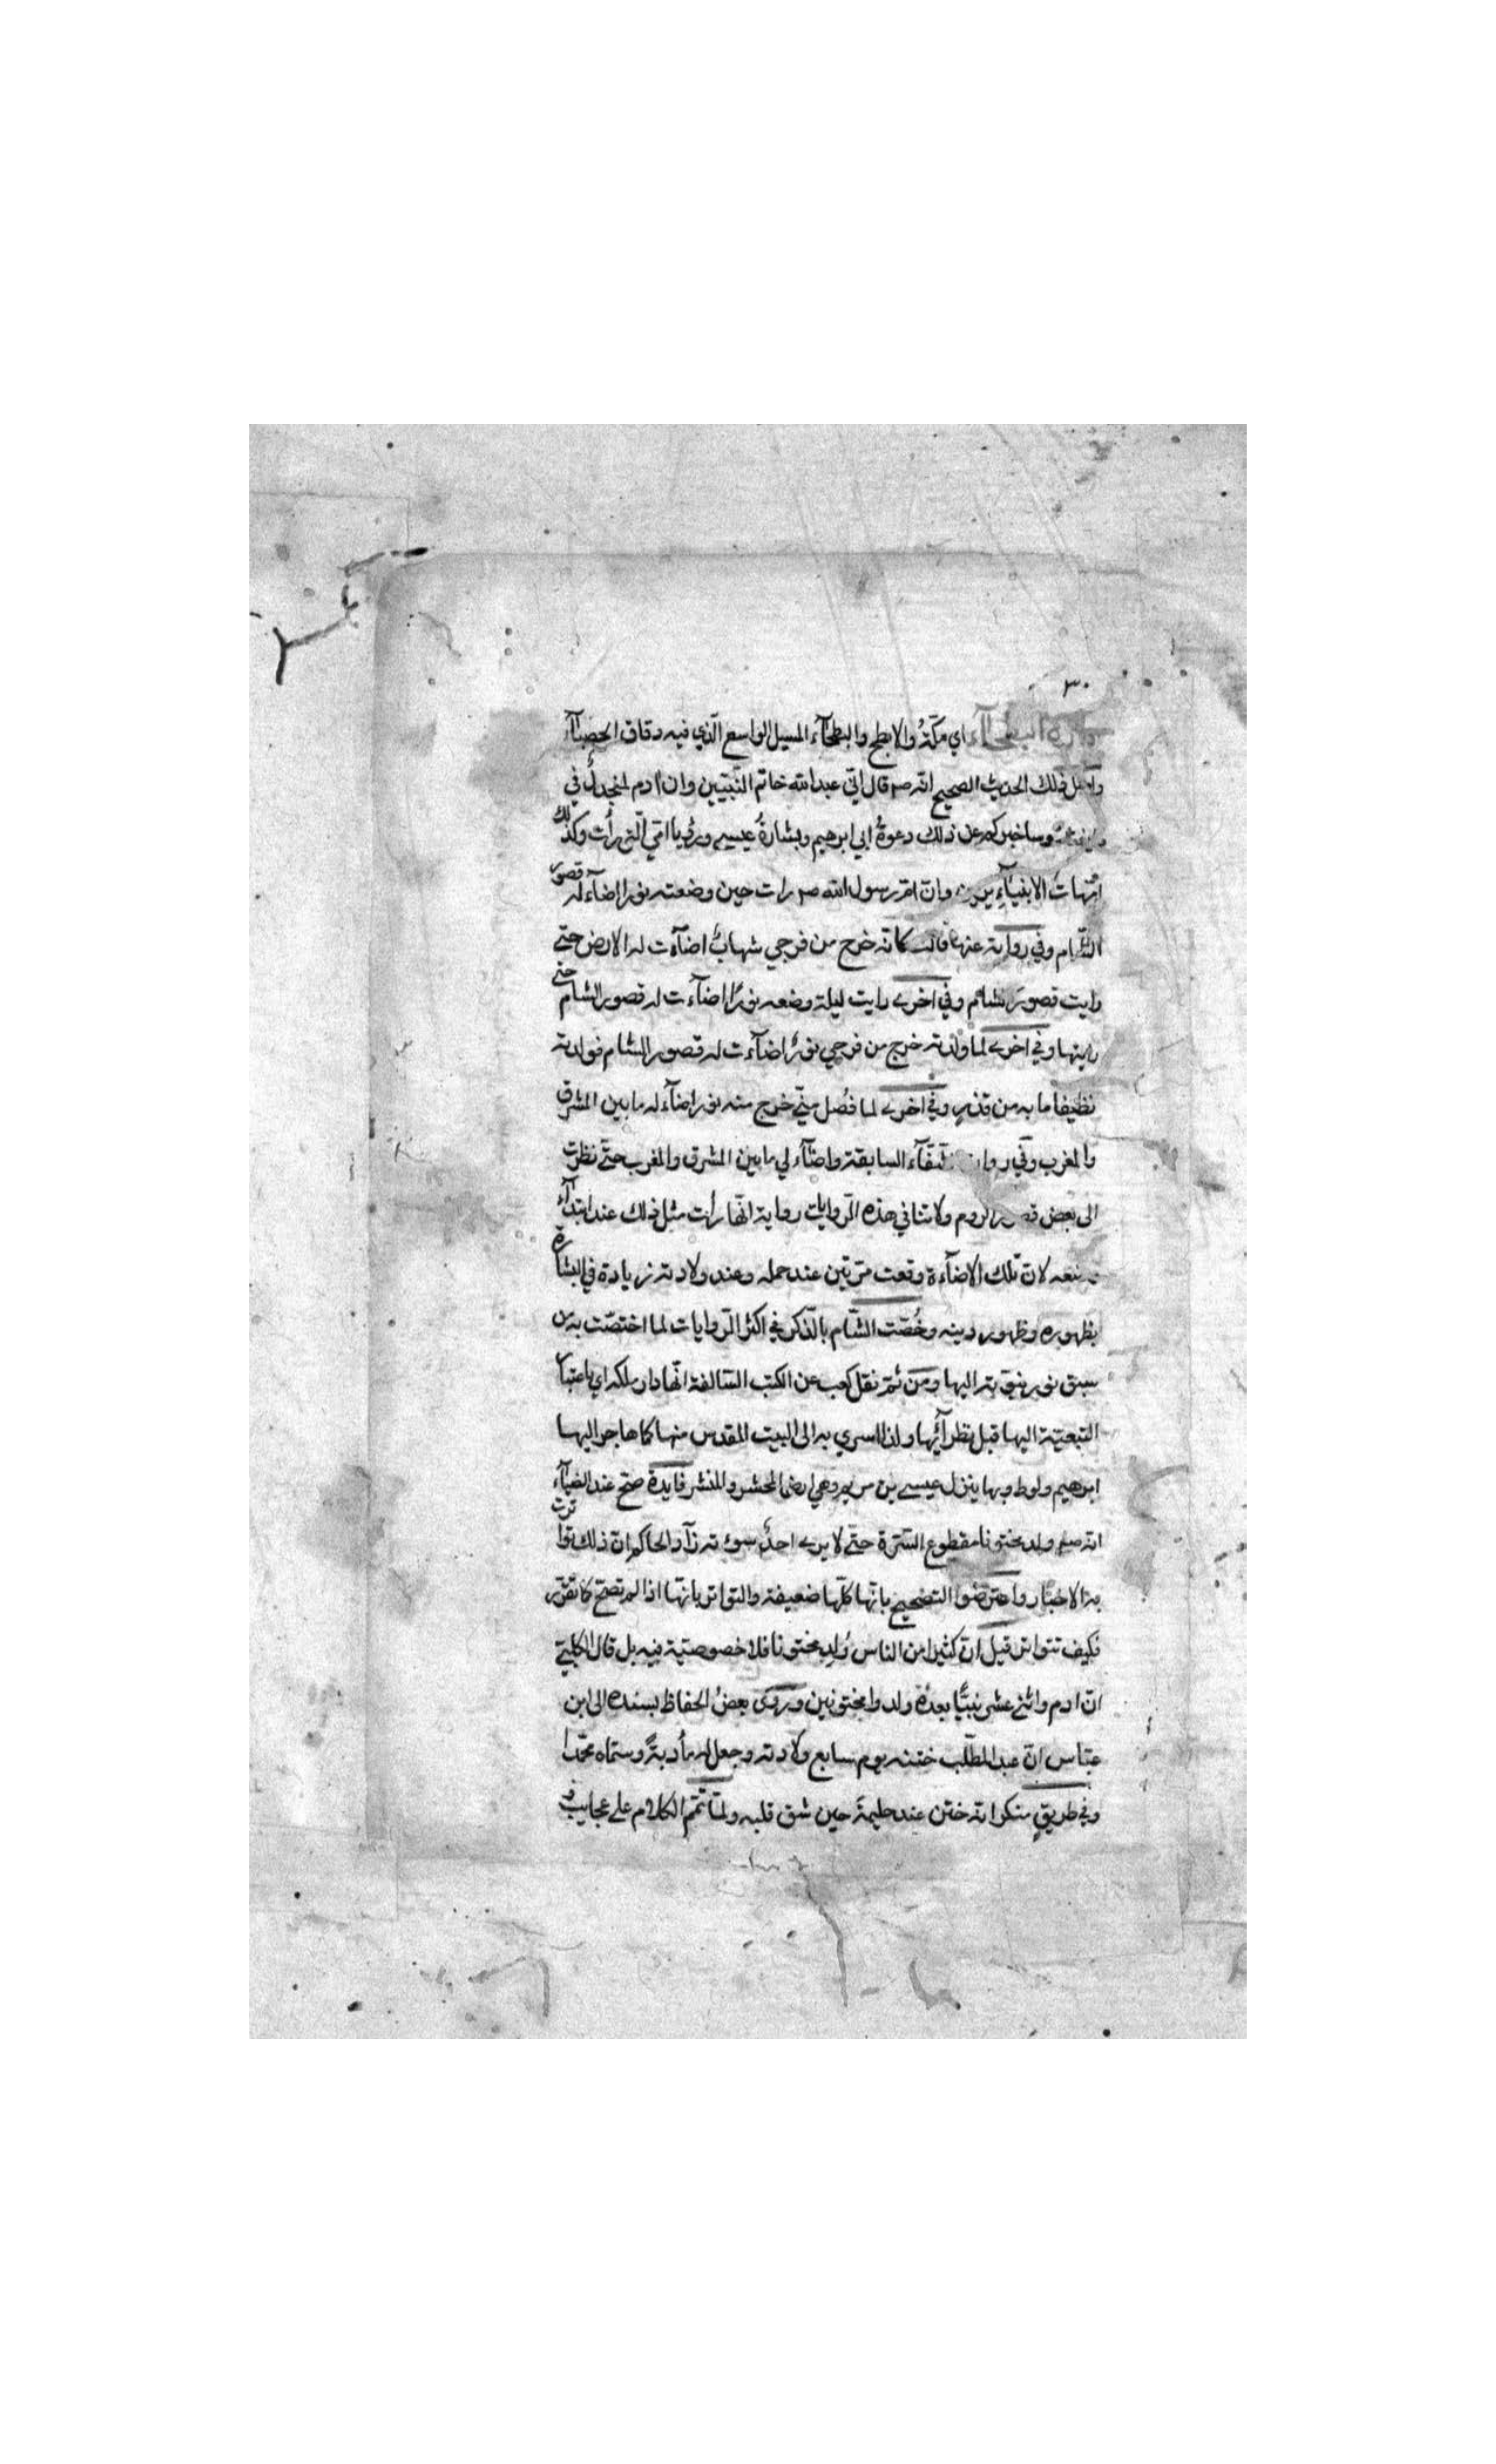 ٣٠
داره البطحآء اي مكّةُ والابطح والبطحآء المسيل الواسع الّذي فيه دقاق الحصبآء
واصل ذلك الحديث الصحيح انّه صم قال انّي عبد الله خاتم النّبيّين وان ادم لمنجدلٌ في
طينته وساخبركم عن ذلك دعوةُ ابي ابرهيم وبشارةُ عيسى ورؤيا امّي الّتي رأت وكذلك
امّهاتُ الانبيآءِ يرين وانّ امّ رسول الله صم رات حين وضعته نورا اضآء له قصور
الشّام وفي رواية عنها قالت كانّه خرج من فرجي شهابٌ اضآءت له الارض حتّى
رايت قصورَ الشام وفي اخرى رايت ليلة وضعه نورًا اضآءت له قصور الشام حتى
رايتها وفي اخرى لما ولدته خرج من فرجي نورٌ اضآءت له قصور الشام فولدته
نظيفا ما به من قذرٍ وفي اخرى لما فُصل منّي خرج منه نور اضآء له ما بين المشرق
والمغرب وفي رواية الشفّآء السابقة واضآء لي ما بين المشرق والمغرب حتّى نظرت
الى بعض قصور الروم ولا تنافي هذه الرّوايات رواية انّها رأت مثل ذلك عند ابتدآء
وضعه لانّ تلك الاضآءة وقعت مرّتين عند حمله وعند ولادته زيادة في البشارة
بظهوره وظهور دينه وخُصّت الشّام بالّذكر في اكثر الرّوايات لما اختصّت به من
سبق نور نبوّته اليها ومن ثمّ نقل كعب عن الكتب السّالفة انّها دار ملكه اي باعتبار
التبعيّة اليها قبل نظرآئها ولذا اسري به الى البيت المقدس منها كما هاجر اليها
ابرهيم ولوط وبها ينزل عيسى بن مريم وهي ارض المحشر والمنشر فايدة صحّ عند الضيآء
انه صلم ولد مختونا مقطوع السّرّة حتّى لا يرى احدٌ سوءته زآد الحاكم انّ ذلك تواترت
به الاخبار واعترضوا التصحيح بانّها كلّها ضعيفة والتواتر بانّها اذا لم تصحّ كما تقرّر
فكيف تتواتر قيل انّ كثيرا من الناس وُلِد مختونا فلا خصوصيّة فيه بل قال الكلبيّ
انّ ادم واثنى عشر نبيًّا بعدهُ ولدوا مختونين وروى بعضُ الحفاظ بسنده الى ابن
عبّاس انّ عبد المطّلب ختنه يوم سابع ولادته وجعل له مأدبةً وسمّاه محمّدا
وفي طريقٍ منكر انّه ختن عند حليمةَ حين شق قلبه ولمّا تمّم الكلام على عجايب